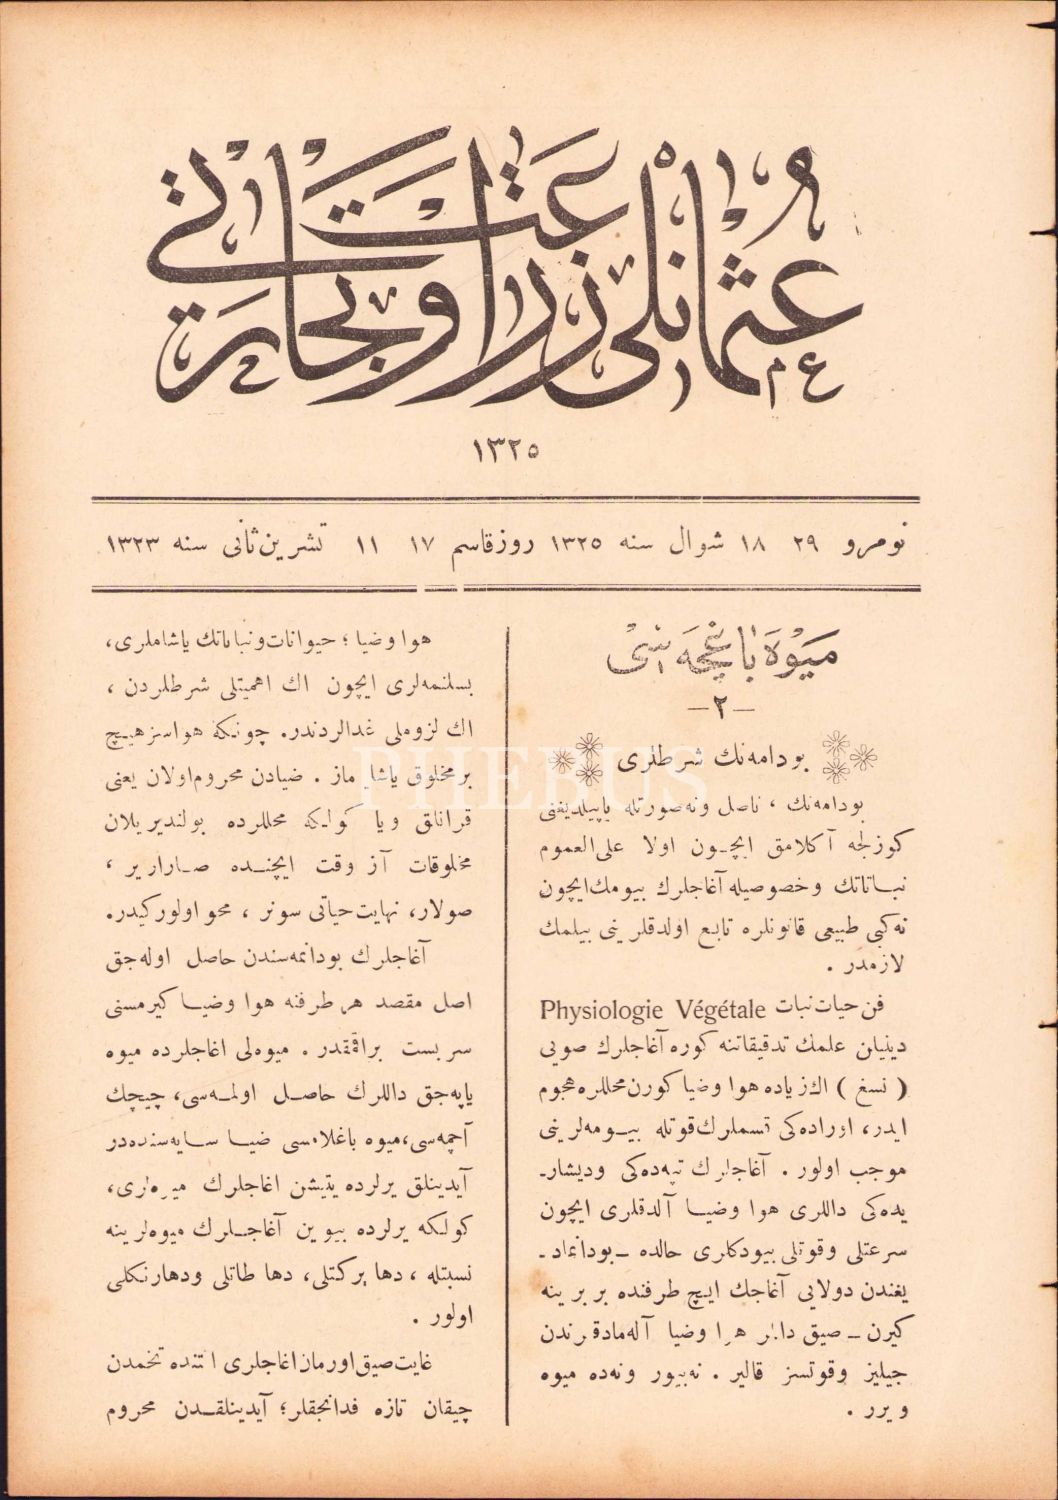 عثمانلى زراعت و تجارت غزته‌سى
١٣٢٥
نومرو ٢٩ ١٨ شوال سنه ١٣٢٥ روزقاسم ١٧ ١١ تشرين‌ثانى سنه ١٣٢٣
ميوه باغچه‌سى
—٢—
بودامه‌نك شرطلرى
بودامه‌نك ، ناصل ونه‌صورتله ياپيلديغنى
كوزلجه آكلامق ايچـون اولا على‌العموم
نبـاتاتك وخصوصيله آغاجلرك بيومك‌ايچون
نه‌كبى طبيعى قانونلره تابع اولدقلرينى بيلمك
لازمدر .
فن حيات نبات Physiologie Végétale
دينيلن علمك تدقيقاتنه كوره آغاجلرك صويى
( نسغ ) اك‌زياده هوا وضيا كورن‌محللره هجوم
ايدر، اورادەكى قسملرك‌قوتله بيـومه‌لرينى
موجب اولور . آغاجلرك تپه‌ده‌كى وديشار-
يده‌كى داللرى هوا وضيـا آلدقلرى ايچون
سرعتلى وقوتلى بيودكلرى حالده ـ بودانماد-
يغندن دولايى آغاجك ايـچ طرفنده بربرينه
كيرن ـ صيق داللر هوا وضيا آله‌مادقلرندن
جيليز وقوتسز قالير . نه‌بيور ونه‌ده ميوه
ويرر .
هوا وضيا ؛ حيوانات‌ونباتاتك ياشاملرى،
بسلنمه‌لرى ايچون اك اهميتلى شرطلردن ،
اك لزوملى غدالردندر. چونكه هواسزهيـچ
برمخلوق ياشايه‌ماز . ضيادن محروم‌اولان يعنى
قرانلق ويا كولـكه محللرده بولنديريلان
مخلوقات آز وقت ايچنـده صـارارير ،
صولار، نهايت‌حياتى سونر ، محو اولوركيدر.
آغاجلرك بودانمه‌سندن حاصل اوله‌جق
اصل مقصد هر طرفنه هوا وضيـا كيرمسنى
سربست براقمقدر . ميوه‌لى اغاجلرده ميوه
ياپه‌جق داللرك حاصـل اولمـه‌سى، چيچك
آچمه‌سى،ميوه باغلامسى ضيـا سـايه‌سنده‌در
آيدينلق يرلرده يتيشن اغاجلرك ميوه‌لرى،
كولـكه يرلرده بيوين آغاجـلرك ميوه‌لرينه
نسبتله ، دها بركتلى، دها طاتلى ودهارنكلى
اولور .
غايت‌صيق‌اورمان‌اغاجلرى التنده تخمدن
چيقان تازه فدانجقلر؛ آيدينلقـدن محروم
PHEBUS